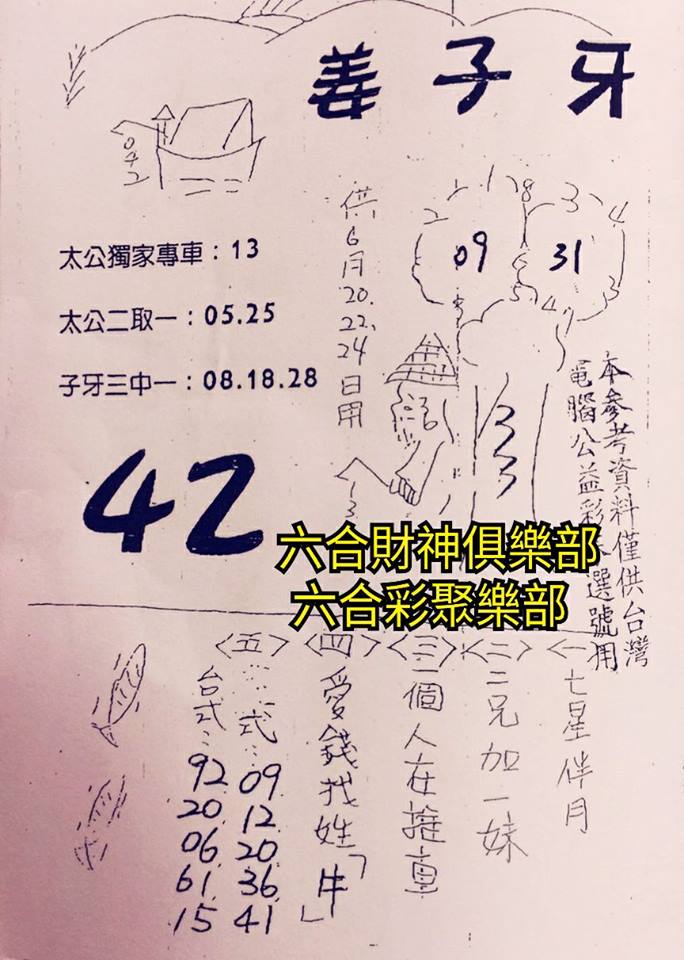 姜子牙
042
太公獨家專車：13
太公二取一：05.25
子牙三中一：08.18.28
42
供6月20.22.24日用
09
31
本參考資料僅供台灣
電腦公益彩券選號用
六合財神俱樂部
六合彩聚樂部
<一>七星伴月
<二>二兄加一妹
<三>三個人在推車
<四>愛錢找姓「牛」
<五>
式：09. 12. 20. 36. 41
台式：92. 20. 06. 61. 15